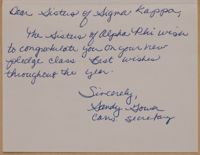 Dear Sisters of Sigma Kappa,
The Sisters of Alpha Phi wish
to congratulate you on your new
pledge class. Best wishes
throughout the year.
Sincerely,
Sandy Gower
Corr. Secretary